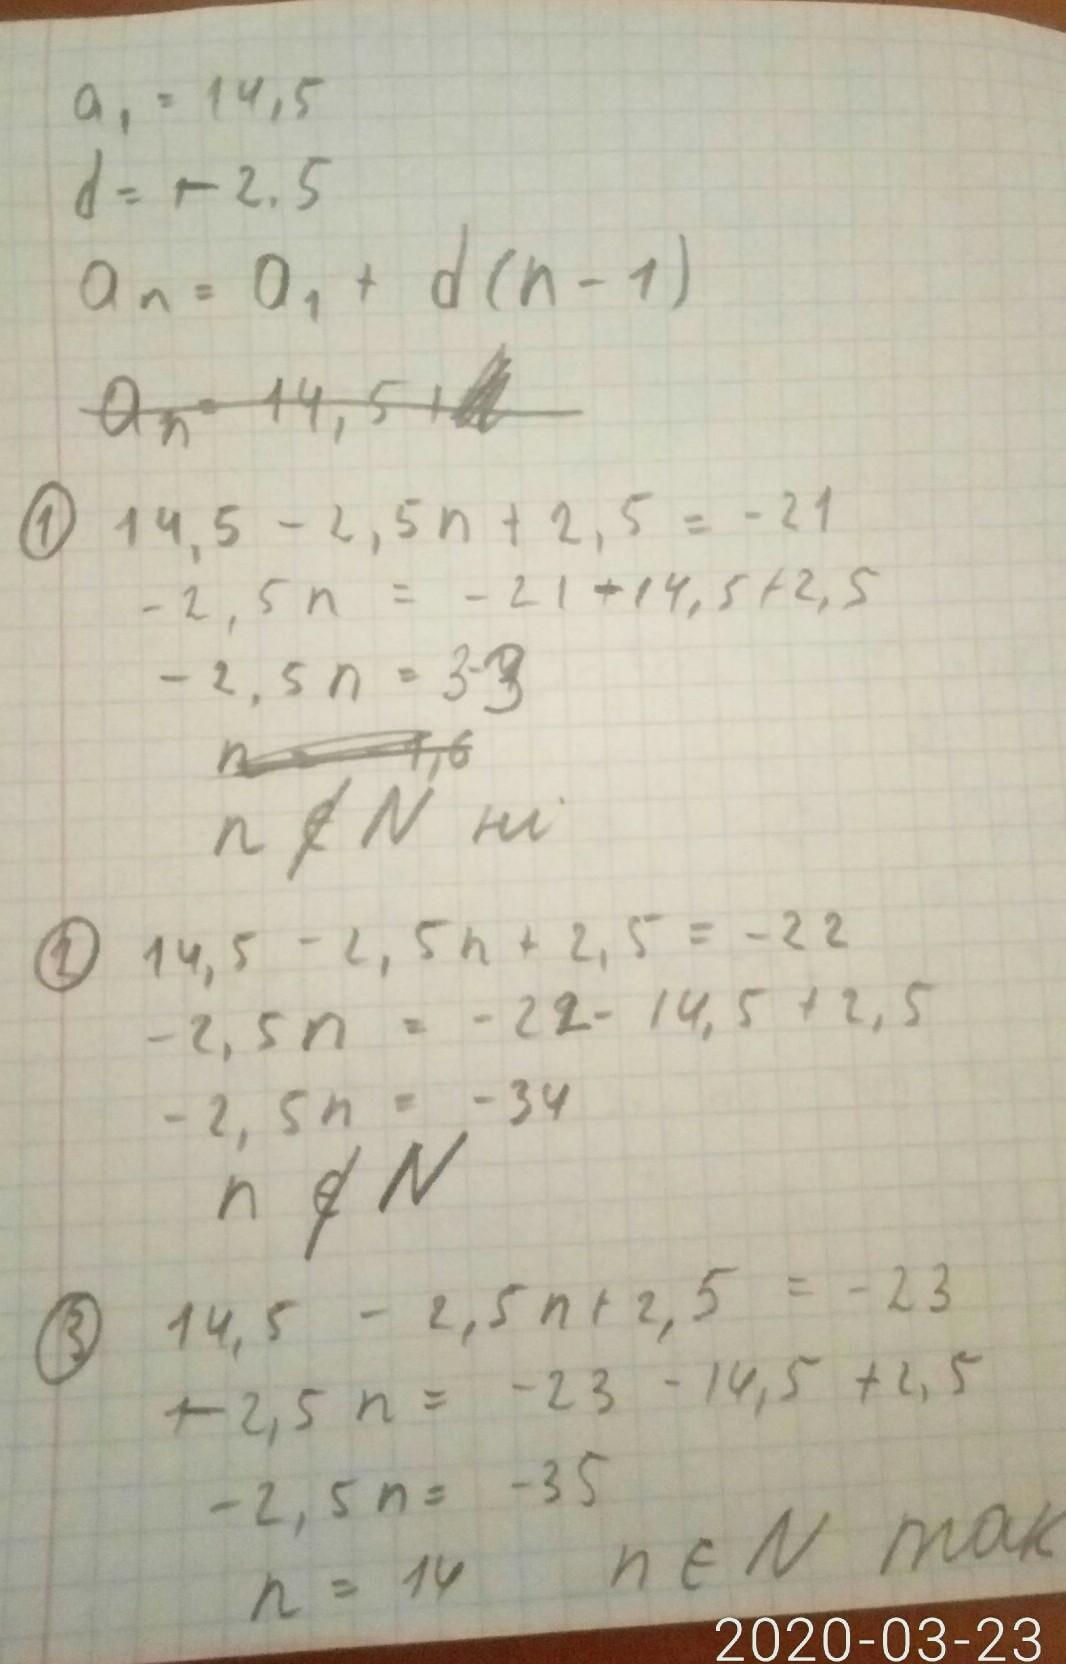 a₁ = 14,5
d = -2.5
aₙ = a₁ + d(n-1)
aₙ = 14,5 +
① 14,5 - 2,5n + 2,5 = -21
-2,5n = -21 - 14,5 + 2,5
-2,5n = 33
n 1,6
n ∉ N ні
② 14,5 - 2,5n + 2,5 = -22
-2,5n = -22 - 14,5 + 2,5
-2,5n = -34
n ∉ N
③ 14,5 - 2,5n + 2,5 = -23
-2,5n = -23 - 14,5 + 2,5
-2,5n = -35
n = 14 n ∈ N так
2020-03-23